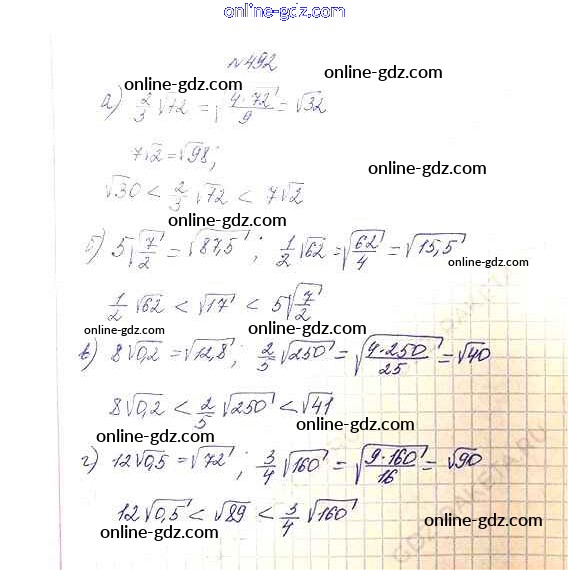 online-gdz.com
№492
online-gdz.com online-gdz.com
а) 2/3 √72 = √(4·72/9) = √32
online-gdz.com
7√2 = √98;
online-gdz.com
√30 < 2/3 √72 < 7√2
online-gdz.com
б) 5√(7/2) = √87,5; 1/2 √62 = √(62/4) = √15,5
online-gdz.com
online-gdz.com
1/2 √62 < √17 < 5√(7/2)
online-gdz.com online-gdz.com
в) 8√0,2 = √12,8; 2/5 √250 = √(4·250/25) = √40
online-gdz.com
8√0,2 < 2/5 √250 < √41
online-gdz.com
online-gdz.com
г) 12√0,5 = √72; 3/4 √160 = √(9·160/16) = √90
online-gdz.com
12√0,5 < √89 < 3/4 √160
online-gdz.com
online-gdz.com